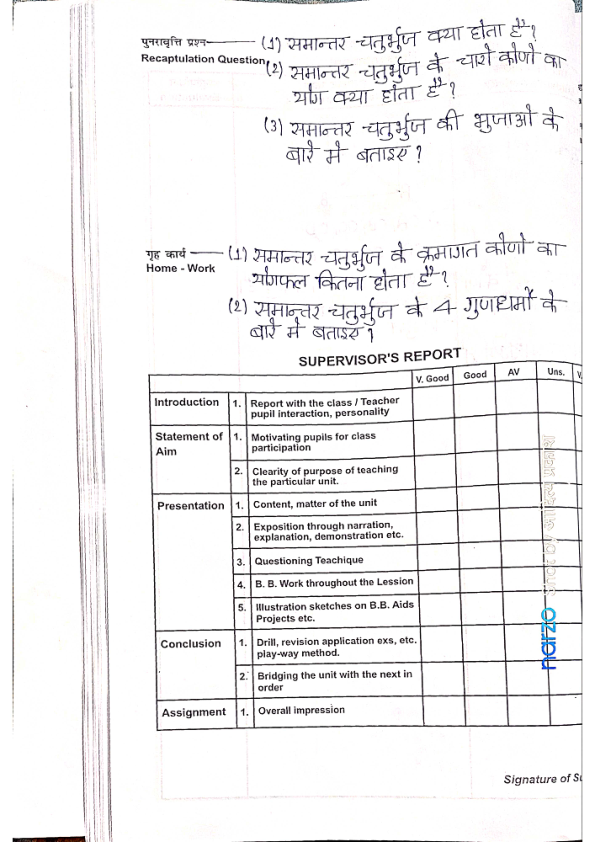 पुनरावृत्ति प्रश्न — (1) समान्तर चतुर्भुज क्या होता है?
Recaptulation Question (2) समान्तर चतुर्भुज के चारो कोणो का
योग क्या होता है?
(3) समान्तर चतुर्भुज की भुजाओ के
बारे मे बताइए?
गृह कार्य — (1) समान्तर चतुर्भुज के क्रमागत कोणो का
Home - Work
योगफल कितना होता है?
(2) समान्तर चतुर्भुज के 4 गुणधर्मो के
बारे मे बताइए?
SUPERVISOR'S REPORT
V. Good Good AV Uns. V.
Introduction 1. Report with the class / Teacher
pupil interaction, personality
Statement of 1. Motivating pupils for class
Aim participation
2. Clearity of purpose of teaching
the particular unit.
Presentation 1. Content, matter of the unit
2. Exposition through narration,
explanation, demonstration etc.
3. Questioning Teachique
4. B. B. Work throughout the Lession
5. Illustration sketches on B.B. Aids
Projects etc.
Conclusion 1. Drill, revision application exs, etc.
play-way method.
2. Bridging the unit with the next in
order
Assignment 1. Overall impression
Signature of Su
narzo Shot by आदित्य प्रकाश